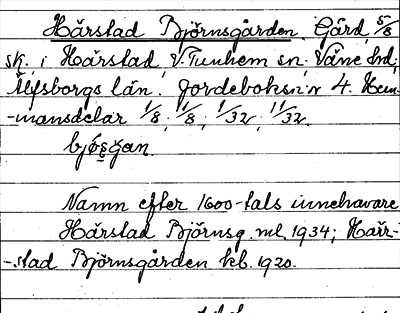 Hårstad Björnsgården. Gård, 5/8
sk. i Hårstad, V. Tunhem sn. Väne hd;
Älfsborgs län. Jordeboksn:r 4. Hem-
-mansdelar 1/8; 1/8; 1/32; 11/32.
Namn efter 1600-tals innehavare
Hårstad Björnsg. ml. 1934; Harr-
-stad Björnsgården kb. 1920.